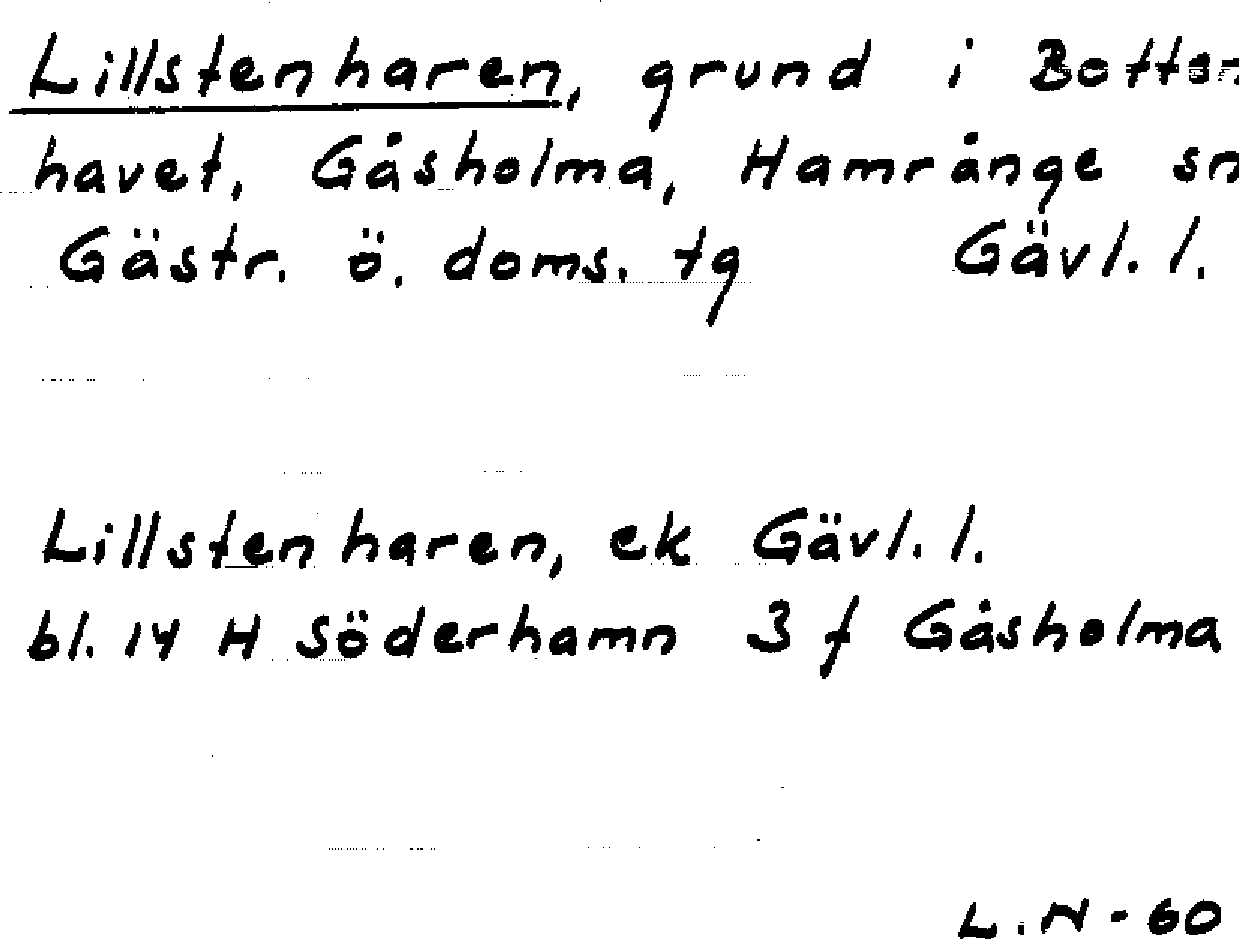 Lillstenharen, grund i Botten
havet, Gåsholma, Hamrånge sn
Gästr. ö. doms. tg Gävl. l.
Lillstenharen, ek Gävl. l.
bl. 14 H Söderhamn 3 f Gåsholma
L.N-60